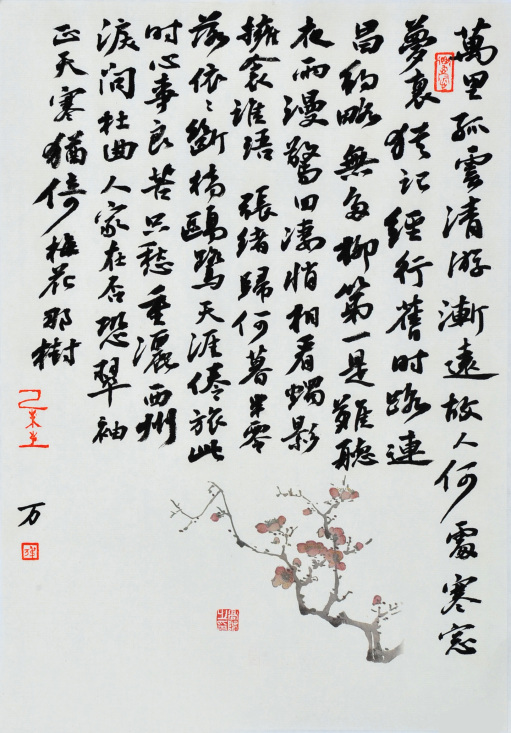 萬里孤雲清游漸遠故人何處寒窓
夢裏猶记經行舊时路連
昌約略無多柳第一是難聽
夜雨謾驚回淒悄相看燭影
擁衾谁語 張緒歸何暮半零
落依〻斷橋鷗鷺天涯倦旅此
时心事良苦只愁重灑西州
淚问杜曲人家在否恐翠袖
正天寒猶倚梅花那樹
万